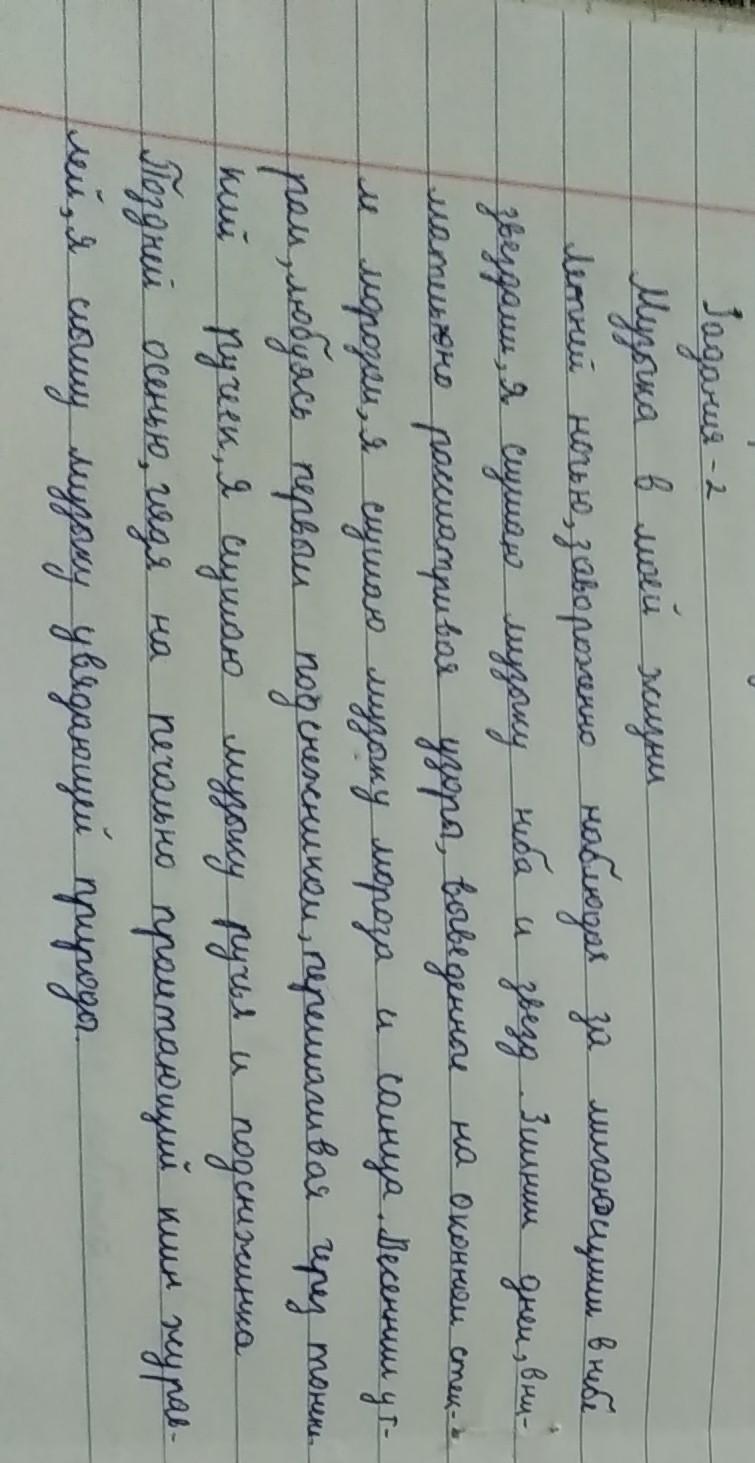 Задания-2
Музыка в моей жизни
Летней ночью, завороженно наблюдая за мигающими в небе
звездами, я слушаю музыку неба и звезд. Зимним днем, вни-
мательно рассматривая узоры, выведенные на оконном стек-
м морозом, я слушаю музыку мороза и солнца. Весенним ут-
ром, любуясь первым подснежником, перешагивая через тонень
кий ручеек, я слушаю музыку ручья и подснижника
Поздней осенью, глядя на печально пролетающий клин журав-
лей, я слышу музыку увядающей природы.